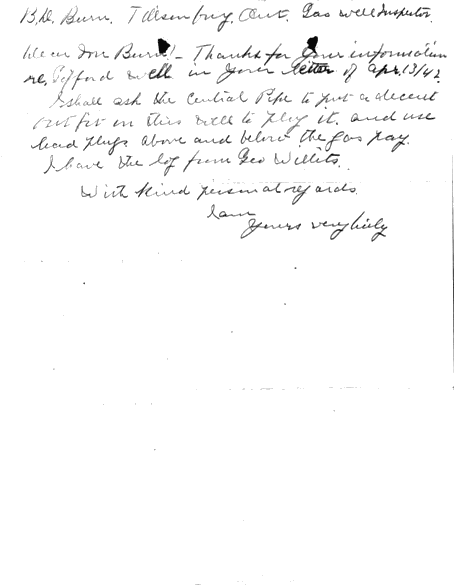 B.D. Burn. Tillsonburg, Ont. Gas well Inspector.
Dear Mr Burn! - Thanks for your information
re, Gifford well in your letter of Apr. 13/42.
I shall ask the Central Pipe to put a decent
outfit on this well to plug it, and use
lead plugs above and below the gas pay.
I have the log from Geo Willits.
With kind personal regards.
I am
Yours very truly